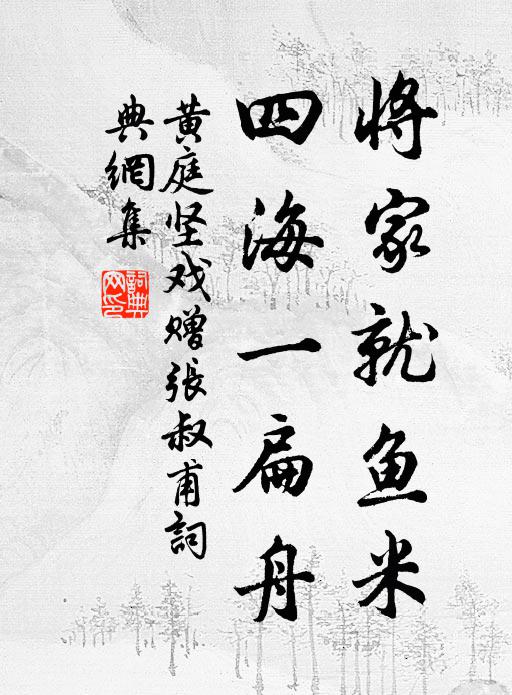 将家就鱼米
四海一扁舟
黄庭坚戏赠張叔甫詞
典網集
詞典网印